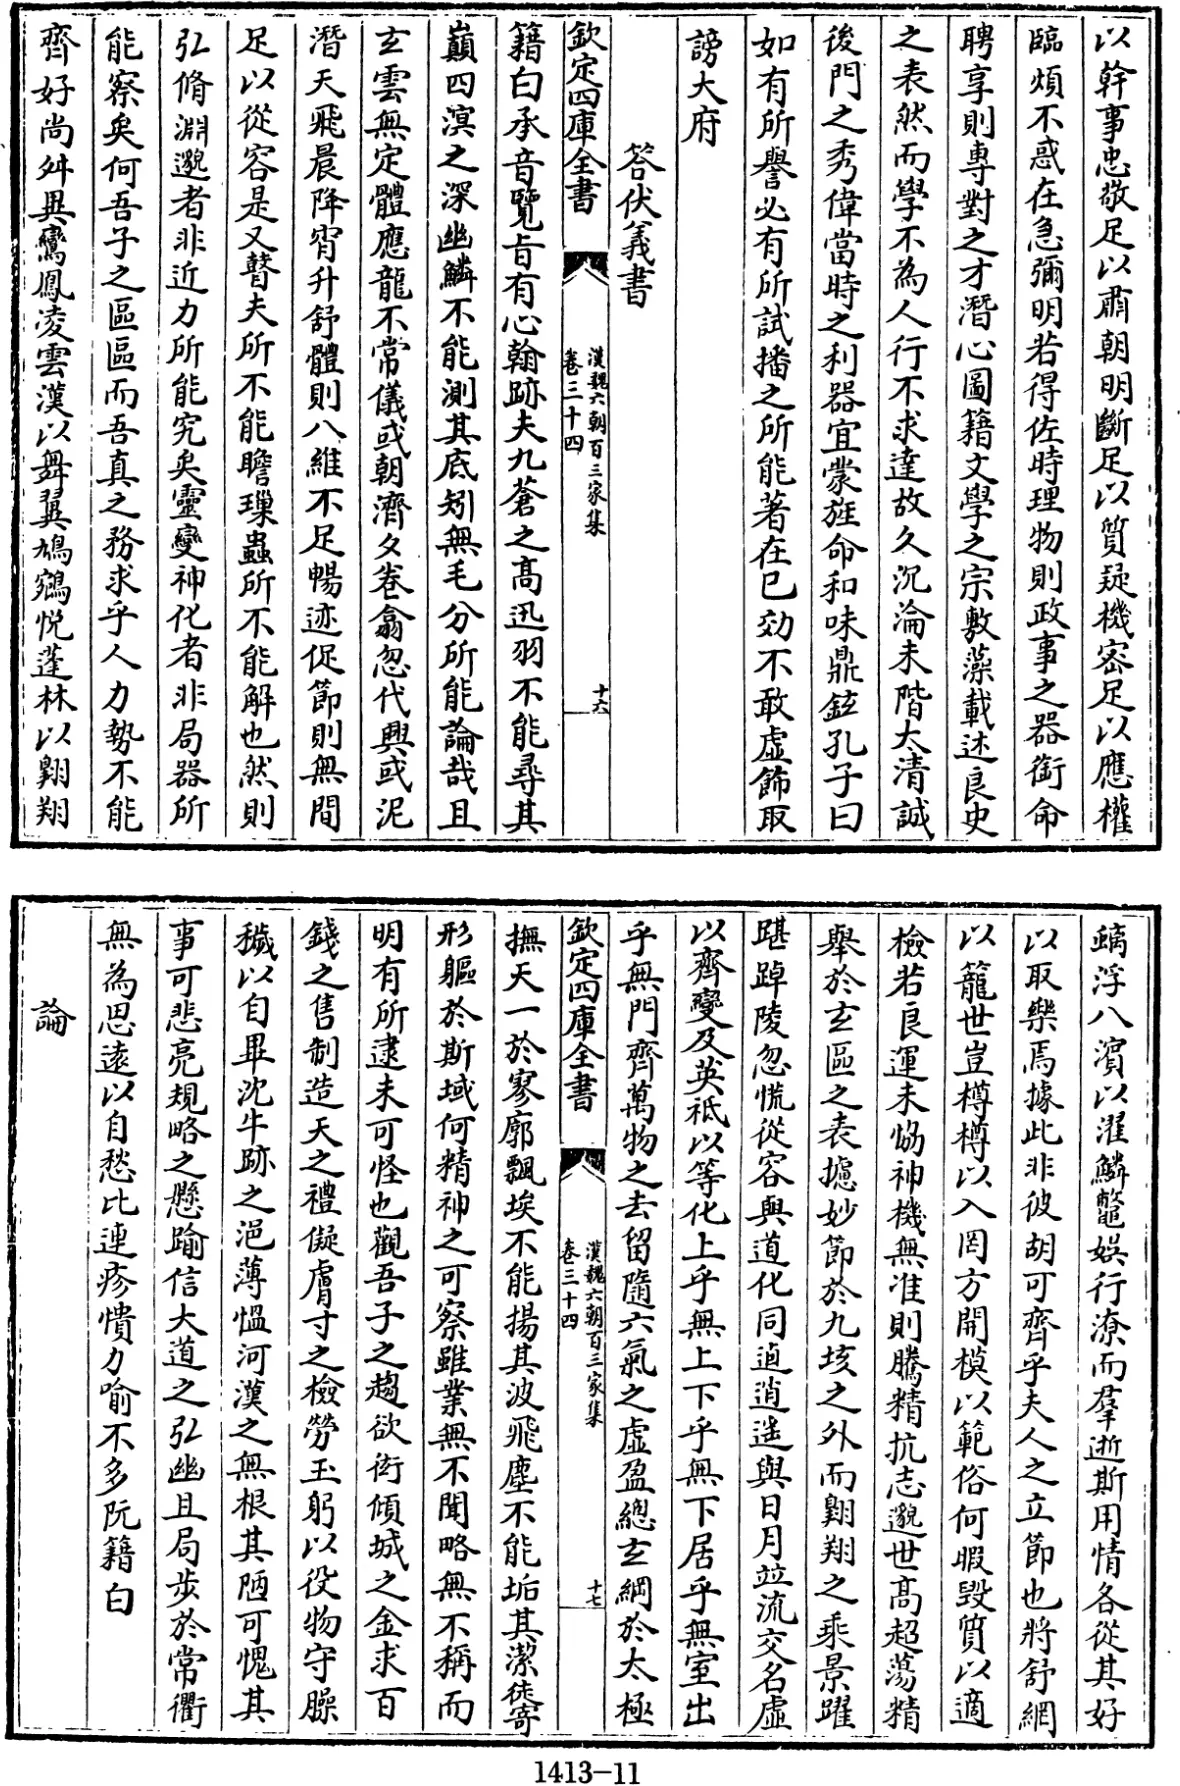 以幹事忠敬足以肅朝明斷足以質疑機密足以應權
臨煩不惑在急彌明若得佐時理物則政事之器銜命
聘享則專對之才潛心圖籍文學之宗敷藻載述良史
之表然而學不為人行不求達故久沉淪未階太清誠
後門之秀偉當時之利器宜蒙旌命和味鼎鉉孔子曰
如有所譽必有所試播之所能著在已效不敢虛飾取
謗大府
答伏義書
欽定四庫全書
漢魏六朝百三家集
卷三十四
十六
籍白承音覽旨有心翰跡夫九蒼之高迅羽不能尋其
巔四溟之深幽鱗不能測其底矧無毛分所能論哉且
玄雲無定體應龍不常儀或朝濟夕卷翕忽代興或泥
潛天飛晨降宵升舒體則八維不足暢迹促節則無間
足以從容是又瞽夫所不能瞻璅蟲所不能解也然則
弘脩淵邈者非近力所能究矣靈變神化者非局器所
能察矣何吾子之區區而吾真之務求乎人力勢不能
齊好尚舛異鸞鳳凌雲漢以舞翼鳩鷃悅蓬林以翺翔
螭浮八濱以濯鱗鼈娛行潦而羣逝斯用情各從其好
以取樂焉據此非彼胡可齊乎夫人之立節也將舒網
以籠世豈樽樽以入罔方開模以範俗何暇毀質以適
檢若良運未恊神機無准則騰精抗志邈世高超蕩精
舉於玄區之表攄妙節於九垓之外而翺翔之乘景躍
踸踔陵忽慌從容與道化同逌逍遙與日月竝流交名虛
以齊變及英祗以等化上乎無上下乎無下居乎無室出
乎無門齊萬物之去留隨六氣之虛盈總玄網於太極
欽定四庫全書
漢魏六朝百三家集
卷三十四
十七
撫天一於寥廓飄埃不能揚其波飛塵不能垢其潔徒寄
形軀於斯域何精神之可察雖業無不聞略無不稱而
明有所逮未可怪也觀吾子之趨欲衒傾城之金求百
錢之售制造天之禮儗膚寸之檢勞玉躬以役物守臊
穢以自畢沈牛跡之浥薄慍河漢之無根其陋可愧其
事可悲亮規略之懸踰信大道之弘幽且局步於常衢
無為思遠以自愁比連疹憒力喻不多阮籍白
論
1413-11